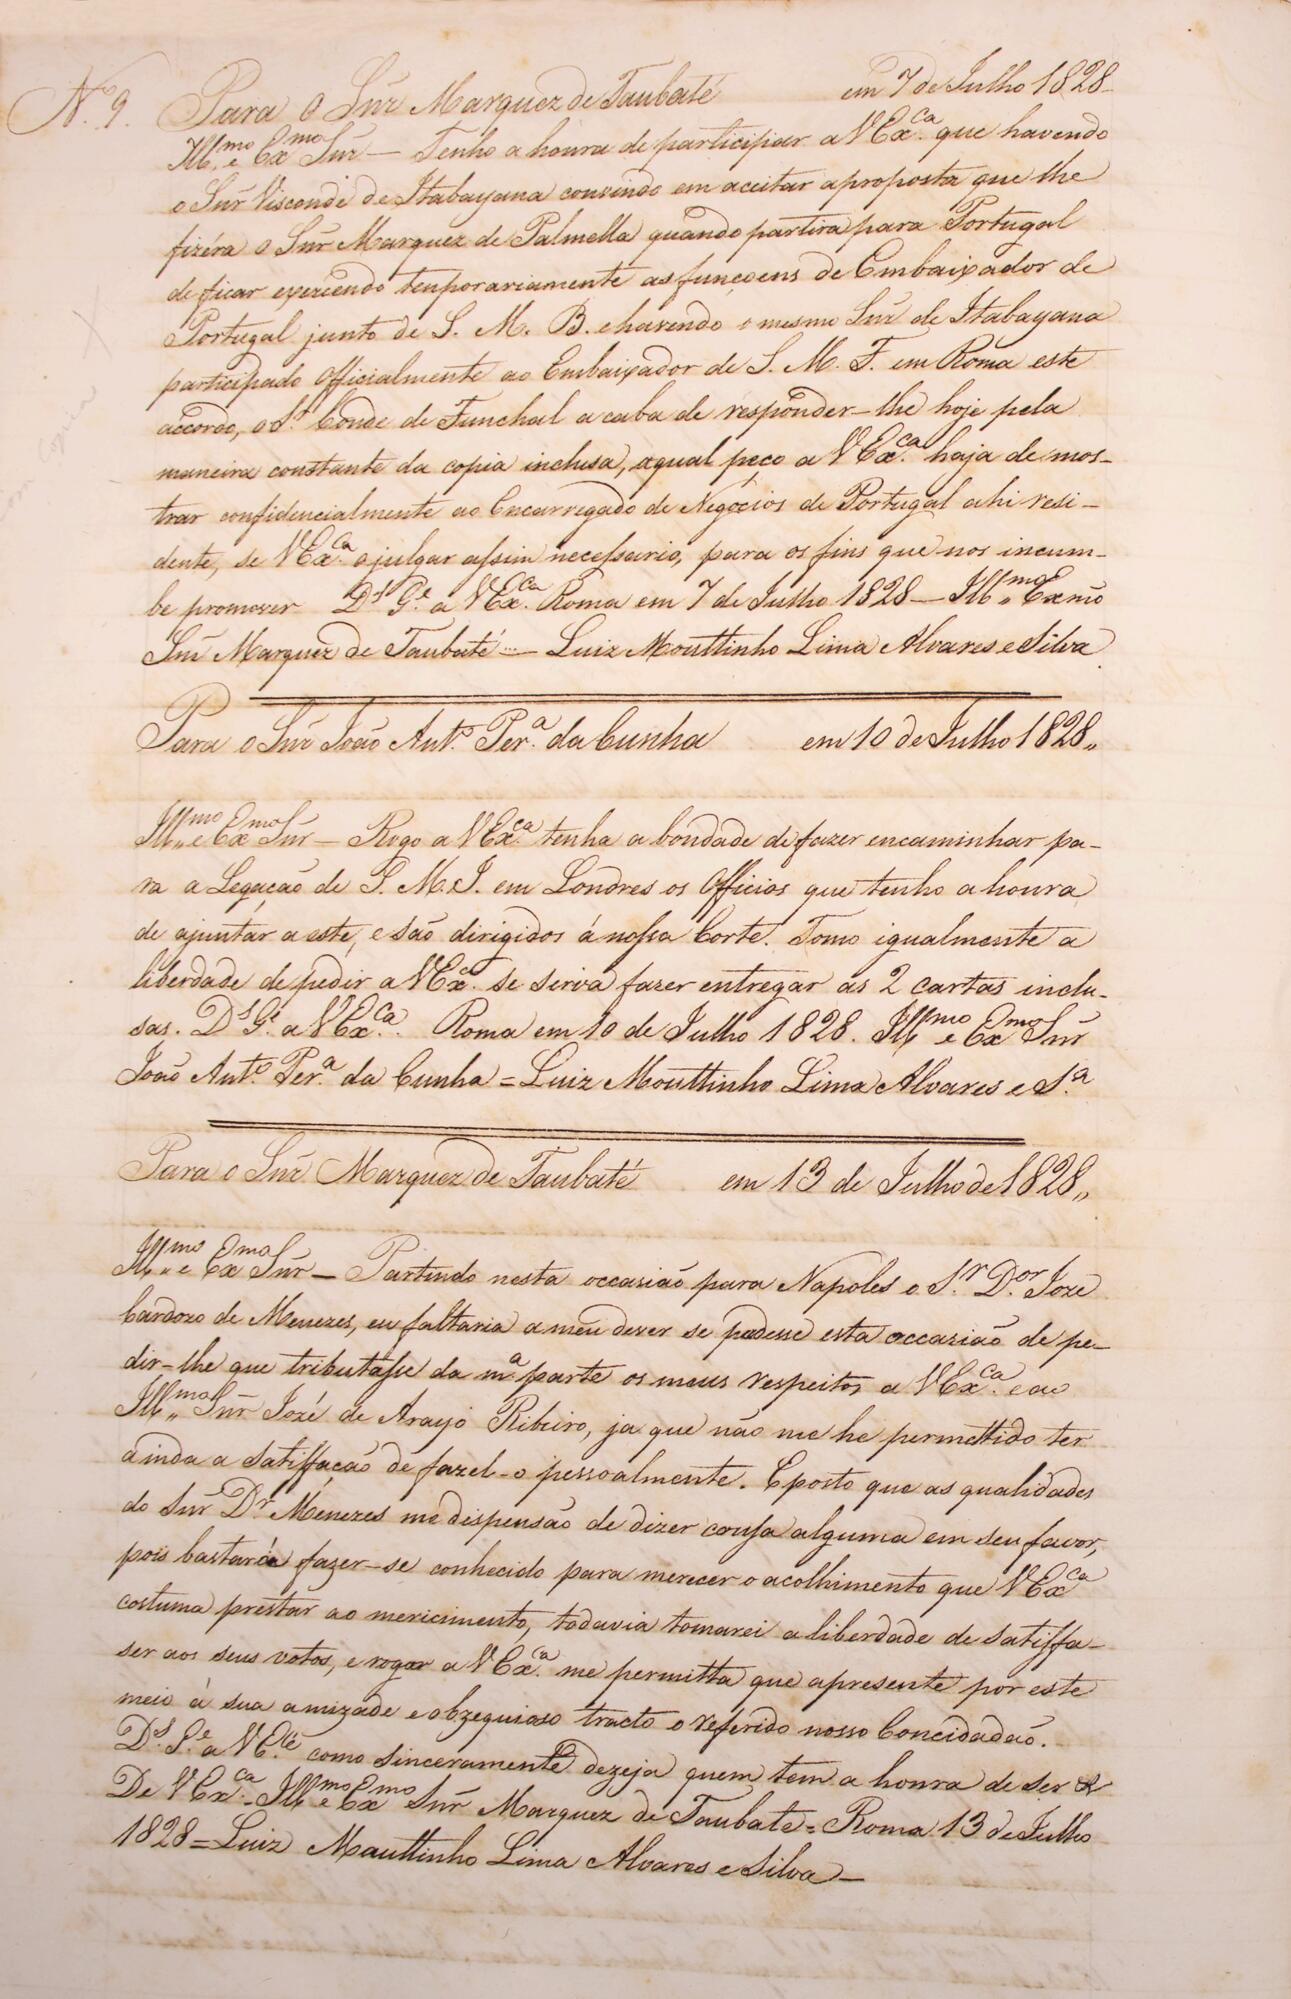 N.º 9. Para o Snr̃ Marquez de Taubaté em 7 de Julho 1828
Ill.mo e Ex.mo Snr̃ — Tenho a honra de participar a V Ex.ca que havendo
o Snr̃ Visconde de Itabayana convindo em aceitar a proposta que lhe
fizéra o Snr̃ Marquez de Palmella quando partira para Portugal
de ficar exercendo temporariamente as funçoens de Embaixador de
Portugal junto de S. M. B. e havendo o mesmo Snr̃ de Itabayana
participado officialmente ao Embaixador de S. M. F. em Roma este
accordo, o S.r Conde de Funchal acaba de responder-lhe hoje pela
maneira constante da copia inclusa, a qual peço a V Ex.ca haja de mos-
trar confidencialmente ao Encarregado de Negócios de Portugal ahi resi-
dente, se V Ex.ca o julgar assim necessario, para os fins que nos incum-
be promover D.s G.e a V Ex.ca Roma em 7 de Julho 1828 — Ill.mo Exmõ
Snr̃ Marquez de Taubaté — Luiz Mouttinho Lima Alvares e Silva
Para o Snr̃ João Ant.º Per.ª da Cunha em 10 de Julho 1828,,
Ill.mo e Ex.mo Snr̃ — Rogo a V Ex.ca tenha a bondade de fazer encaminhar pa-
ra a Legação de S. M. I. em Londres os Officios que tenho a honra
de ajuntar a este, e são dirigidos á nossa Corte. Tomo igualmente a
liberdade de pedir a V Ex.ca se sirva fazer entregar as 2 cartas inclu-
sas. D.s G.e a V Ex.ca. Roma em 10 de Julho 1828. Ill.mo e Ex.mo Snr̃
João Ant.º Per.ª da Cunha = Luiz Mouttinho Lima Alvares e S.ª
Para o Snr̃ Marquez de Taubaté em 13 de Julho de 1828,,
Ill.mo e Ex.mo Snr̃ — Partindo nesta occasião para Napoles o S.r D.or Jozé
Cardozo de Menezes, eu faltaria a meu dever se perdesse esta occasião de pe-
dir-lhe que tributasse da m.ª parte os meus respeitos a V Ex.ca e ao
Ill.mo Snr̃ Jozé de Araujo Ribeiro, ja que não me he permettido ter
ainda a satisfação de fazel-o pessoalmente. E posto que as qualidades
do Snr̃ D.r Menezes me dispensão de dizer cousa alguma em seu favor,
pois bastará fazer-se conhecido para merecer o acolhimento que V Ex.ca
costuma prestar ao mericimento, todavia tomarei a liberdade de satisfa-
ser aos seus votos, e rogar a V Ex.ca me permitta que apresente por este
meio á sua amizade e obzequioso tracto o referido nosso Concidadão.
D.s G.e a V E.ce como sinceramente dezeja quem tem a honra de ser &
De V Ex.ca — Ill.mo e Ex.mo Snr̃ Marquez de Taubate = Roma 13 de Julho
1828 = Luiz Mauttinho Lima Alvares e Silva —